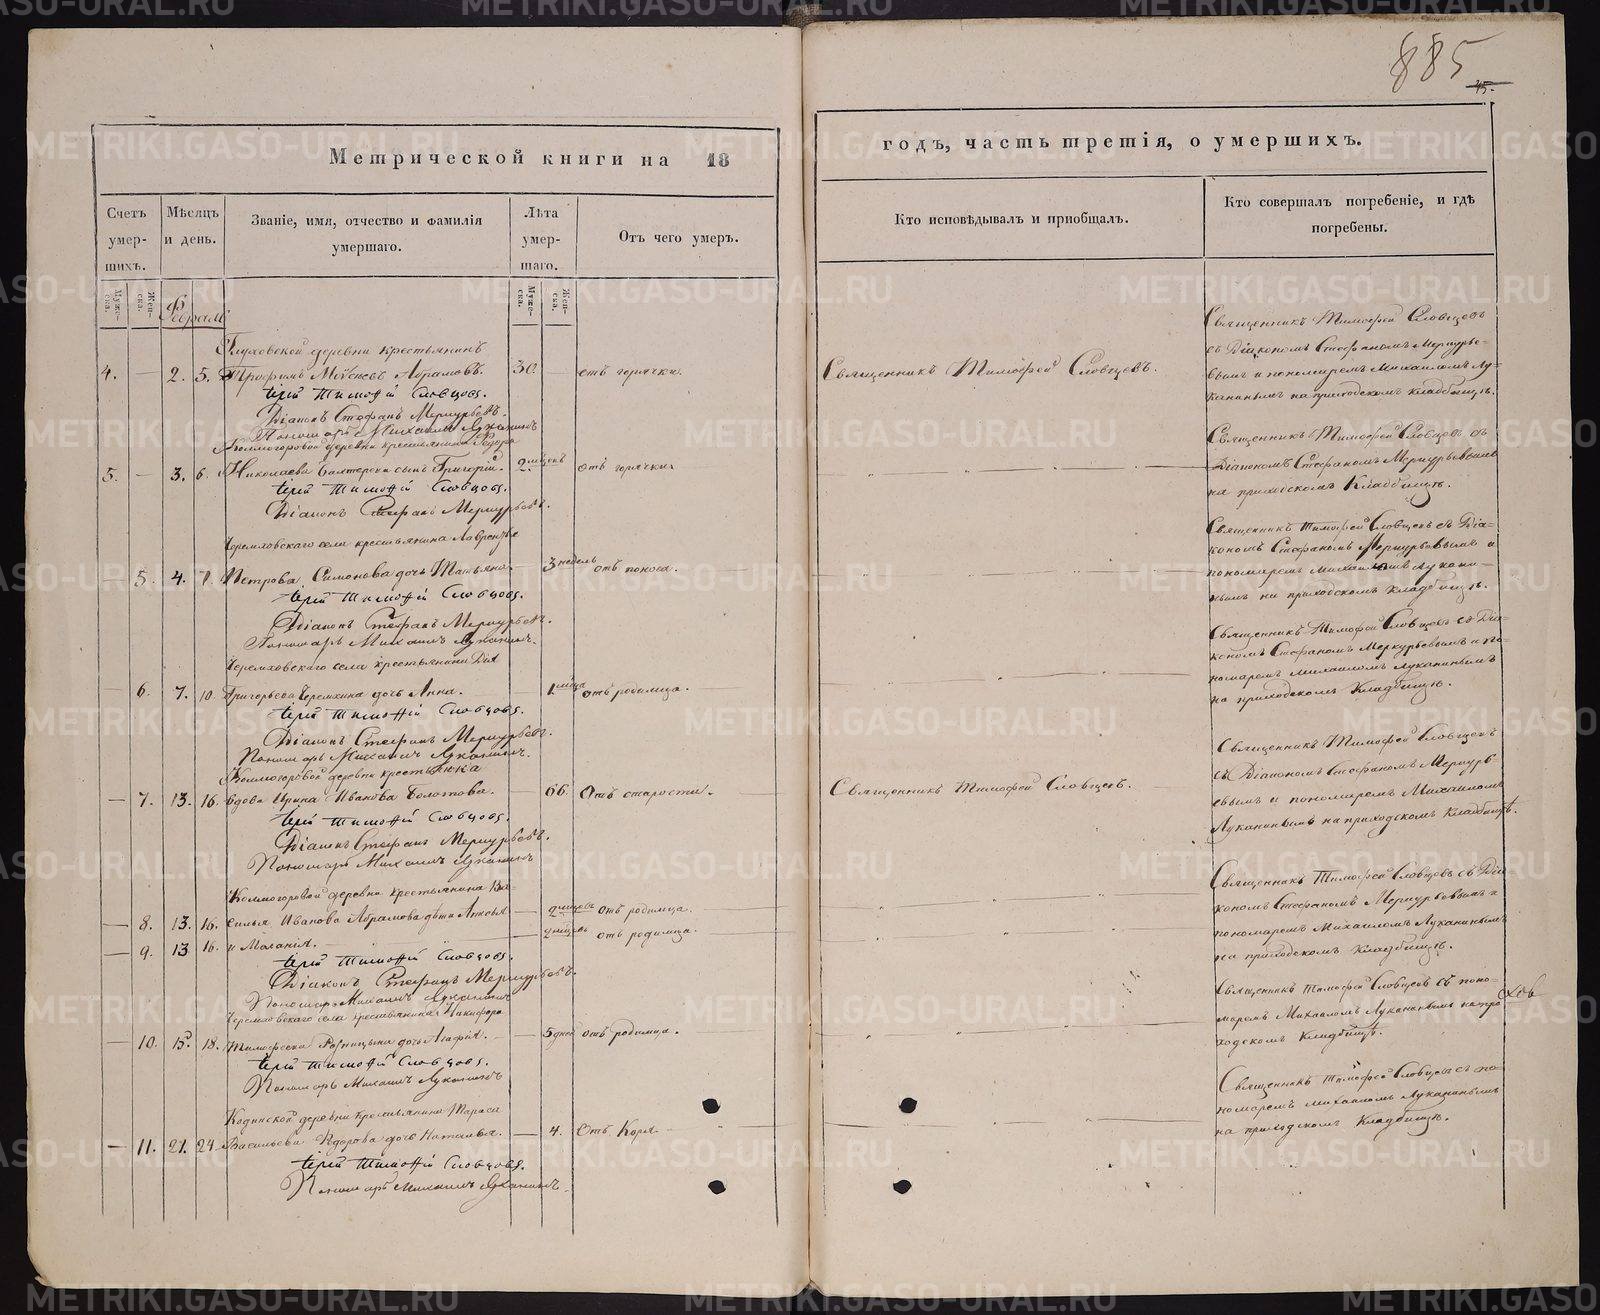 885
45.
Метрической книги на 18
годъ, часть третія, о умершихъ.
Счетъ умер-шихъ.
Мѣсяцъ и день.
Званіе, имя, отчество и фамилія умершаго.
Лѣта умер-шаго.
Отъ чего умеръ.
Кто исповѣдывалъ и пріобщалъ.
Кто совершалъ погребеніе, и гдѣ погребены.
Муже-ска.
Жен-ска.
Муже-ска.
Жен-ска.
Февраль
деревни крестьянинъ
4. — 2. 5. Трофимъ Моисеевъ Абрамовъ. 30. отъ горячки.
Іерей Тимоѳей Словцовъ.
Діаконъ Стефанъ Меркурьевъ.
Пономарь Михаилъ Луканинъ
Священникъ Тимофей Словцевъ.
Священникъ Тимофей Словцевъ
съ Діакономъ Стефаномъ Меркурье-
вымъ и пономаремъ Михаиломъ Лу-
канинымъ на приходскомъ кладбищѣ.
деревни крестьянина
5. — 3. 6. Николаева сынъ Григорій. 2. отъ горячки
Іерей Тимоѳей Словцовъ.
Діаконъ Стефанъ Меркурьевъ.
Священникъ Тимофей Словцовъ съ
Діакономъ Стефаномъ Меркурьевымъ
на приходскомъ Кладбищѣ.
села крестьянина Лаврентья
— 5. 4. 7. Петрова Симонова дочь Татьяна. — 3 недель отъ поноса.
Іерей Тимоѳей Словцовъ.
Діаконъ Стефанъ Меркурьевъ.
Пономарь Михаилъ Луканинъ.
Священникъ Тимофей Словцевъ съ Діа-
кономъ Стефаномъ Меркурьевымъ и
пономаремъ Михаиломъ Лукани-
нымъ на приходскомъ кладбищѣ.
Черемховскаго села крестьянина
— 6. 7. 10. Григорьева Черемхина дочь Анна. — 1 отъ родимца.
Іерей Тимоѳей Словцовъ.
Діаконъ Стефанъ Меркурьевъ.
Пономарь Михаилъ Луканинъ.
Священникъ Тимофей Словцевъ съ Діа-
кономъ Стефаномъ Меркурьевымъ и по-
номаремъ Михаиломъ Луканинымъ
на приходскомъ Кладбищѣ.
Колмогоровой деревни крестьянка
— 7. 13. 16. вдова Ирина Иванова Болотова. — 66. Отъ старости.
Іерей Тимоѳей Словцовъ.
Діаконъ Стефанъ Меркурьевъ.
Пономарь Михаилъ Луканинъ
Священникъ Тимофей Словцевъ.
Священникъ Тимофей Словцевъ
съ Діакономъ Стефаномъ Меркурь-
евымъ и пономаремъ Михаиломъ
Луканинымъ на приходскомъ Кладбищѣ.
Колмогоровой деревни крестьянина Ва-
— 8. 13. 16. силья Иванова Абрамова дѣти — 2 отъ родимца.
— 9. 13 16. и Маланія. — отъ родимца.
Іерей Тимоѳей Словцовъ.
Діаконъ Стефанъ Меркурьевъ.
Пономарь Михаилъ Луканинъ
Священникъ Тимофей Словцевъ съ Діа-
кономъ Стефаномъ Меркурьевымъ и
пономаремъ Михаиломъ Луканинымъ
на приходскомъ Кладбищѣ.
Черемховскаго села крестьянина Никифора
— 10. 15. 18. Тимофеева дочь Агафія. — 5 дней отъ родимца.
Іерей Тимоѳей Словцовъ.
Пономарь Михаилъ Луканинъ
Священникъ Тимофей Словцовъ съ поно-
маремъ Михаиломъ Луканинымъ на при-
ходскомъ Кладбищѣ.
Кодинской деревни крестьянина Тараса
— 11. 21. 24. Васильева дочь Наталья. — 4. Отъ Кори
Іерей Тимоѳей Словцовъ.
Пономарь Михаилъ Луканинъ.
Священникъ Тимофей Словцовъ съ по-
номаремъ Михаиломъ Луканинымъ
на приходскомъ Кладбищѣ.
METRIKI.GASO-URAL.RU